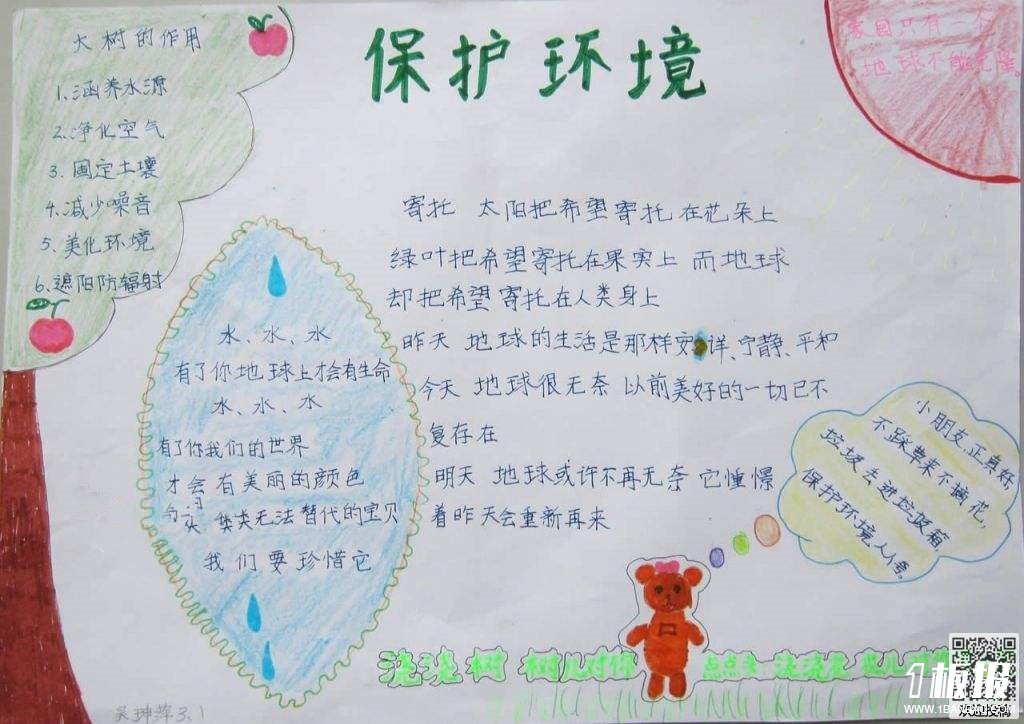 保护环境
大树的作用
1、涵养水源
2、净化空气
3、固定土壤
4、减少噪音
5、美化环境
6、遮阳防辐射
家园只有一个
地球不能克隆。
寄托 太阳把希望寄托在花朵上
绿叶把希望寄托在果实上 而地球
却把希望寄托在人类身上
昨天 地球的生活是那样安详、宁静、平和
今天 地球很无奈 以前美好的一切已不
复存在
明天 地球或许不再无奈 它憧憬
着昨天会重新再来
水、水、水
有了你地球上才会有生命
水、水、水
有了你我们的世界
才会有美丽的颜色
类无法替代的宝贝
我们要珍惜它
小朋友,正真好,
不踩草来不摘花,
垃圾丢进垃圾箱,
保护环境人人夸。
浇浇树 树儿对你 点点头 浇浇
1板报
WWW.1BANBAO.COM
欢迎投稿